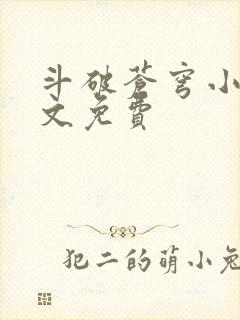 斗破苍穹小
文免費
犯二的萌小兔